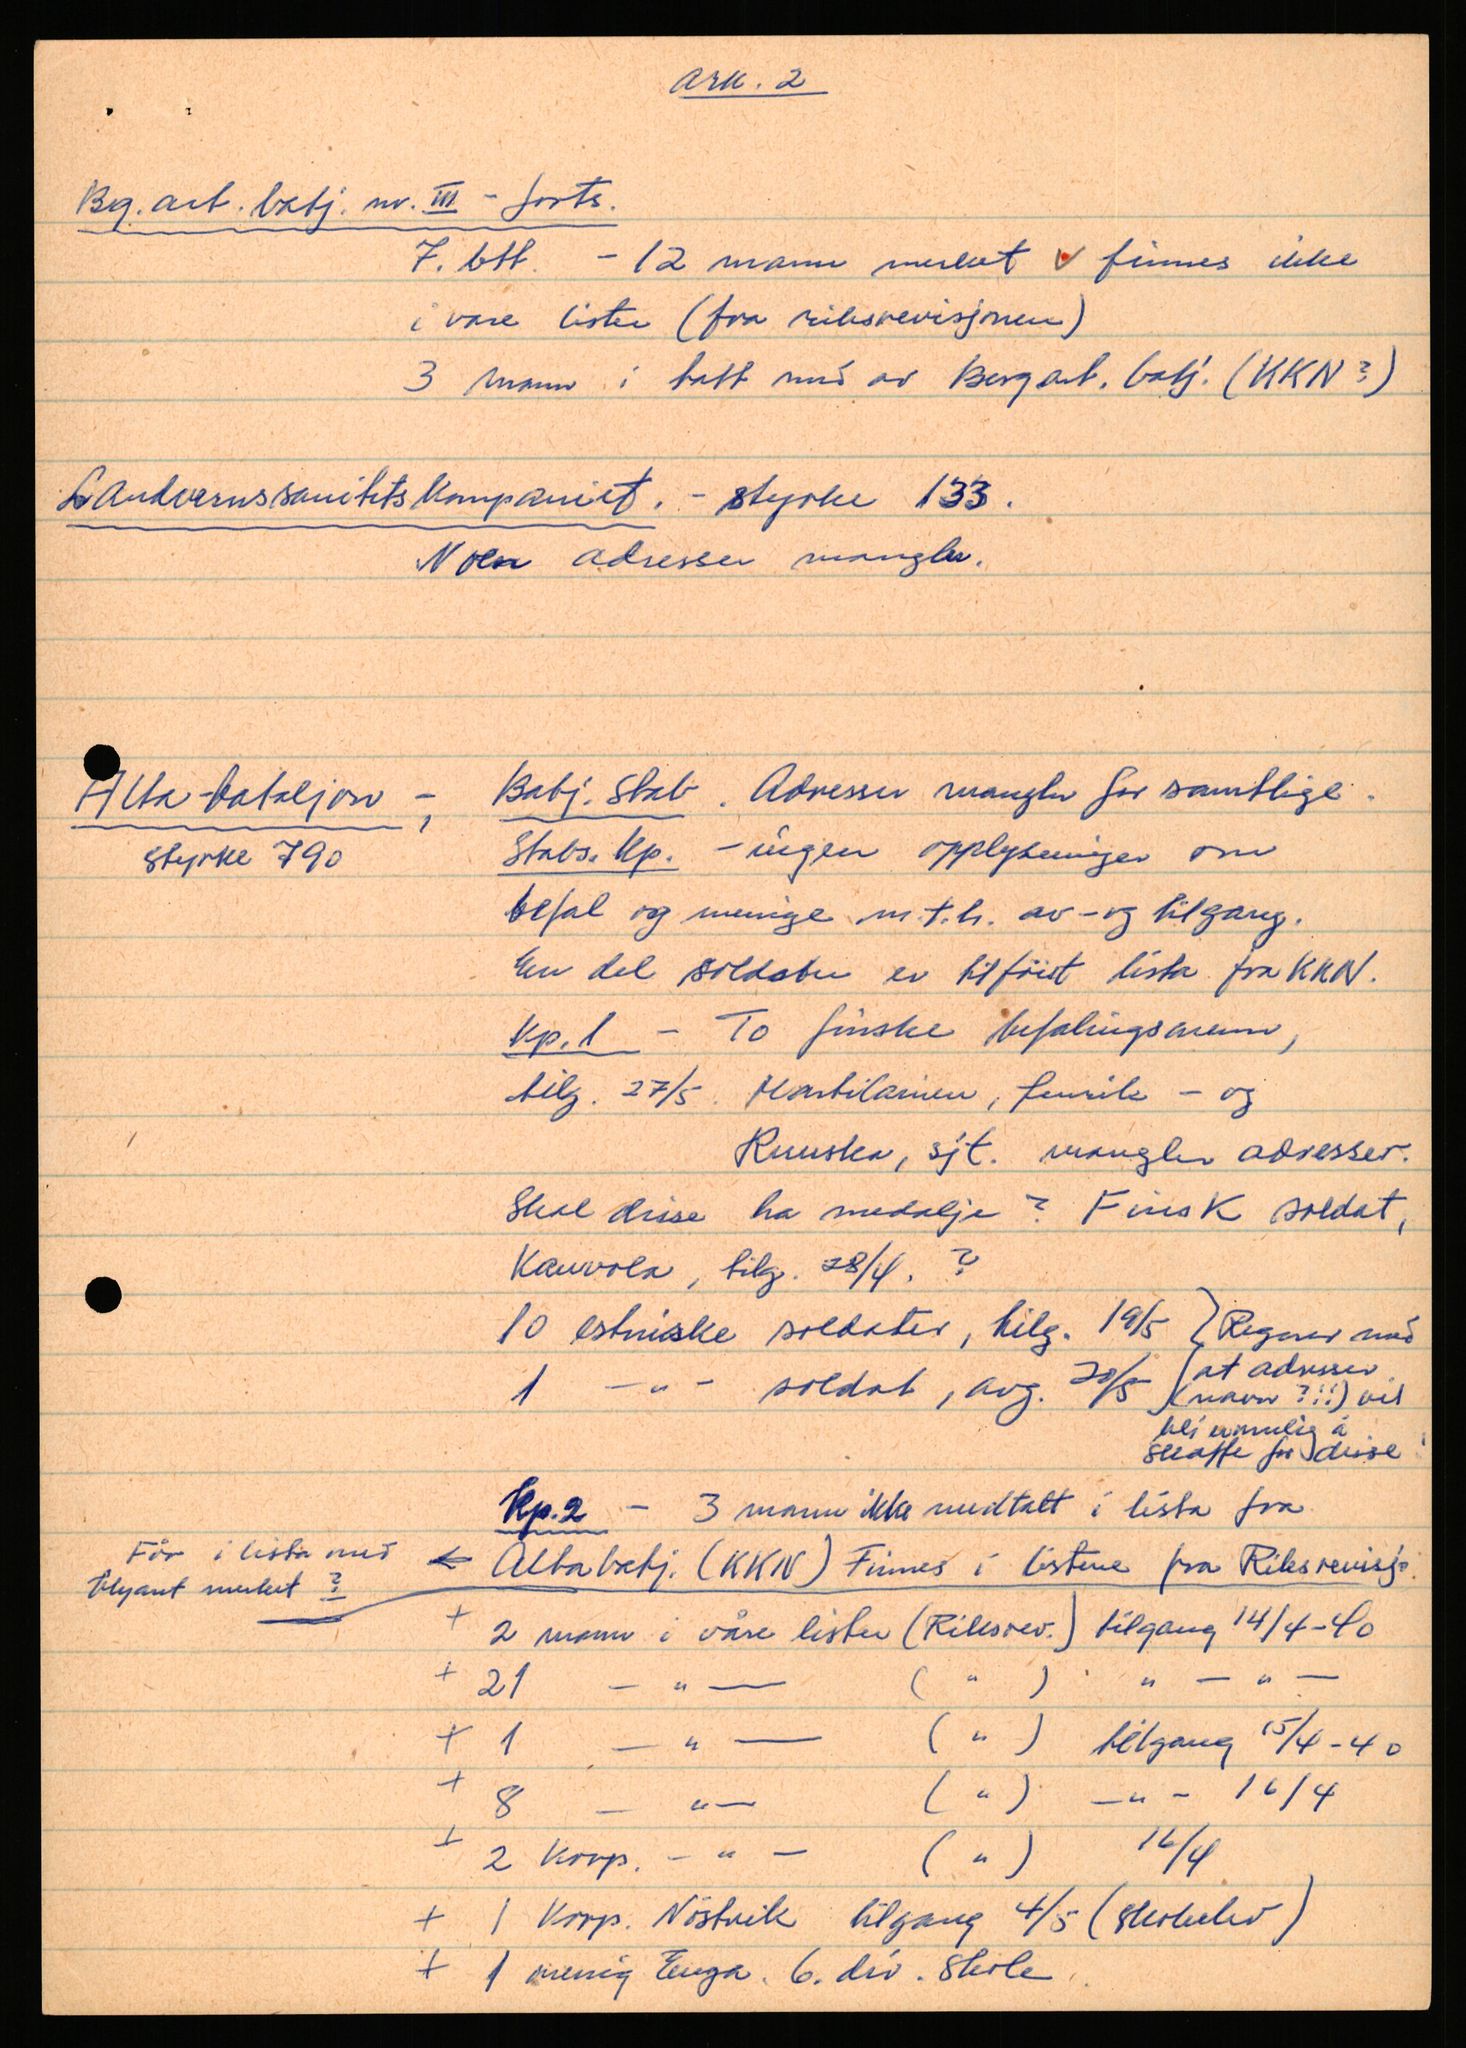 Ark. 2
Bg. art. batj. nr. III - forts.
7. btt. - 12 mann merket v finnes ikke
i våre lister (fra riksrevisjonen)
3 mann i batt nå av Berg art. batj. (KKN?)
Landvernssanitetskompaniet. - styrke 133.
Noen adresser mangler.
Alta bataljon -, Batj. stab. Adresser mangler for samtlige.
styrke 790 Stabs. kp. - ingen opplysninger om
befal og menige m.t.h. av- og tilgang.
En del soldater er tilføiet lista fra KKN.
Kp. 1 - To finske befalingsmenn,
tilg. 27/5. Martilainen, fenrik - og
Ruuska, sjt. mangler adresser.
Skal disse ha medalje? Finsk soldat,
Kauvola, tilg. 28/4. ?
10 estniske soldater, tilg. 19/5 } Regner med
1 - " - soldat, avg. 20/5 at adresser
(navn ?!!) vil
bli umulig å
skaffe for disse
Kp. 2 - 3 mann ikke medtatt i lista fra
Før i lista med ← Alta batj. (KKN) Finnes i listene fra Riksrevisj.
blyant merket ?
+ 2 mann i våre lister (Riksrev.) tilgang 14/4-40
+ 21 - " - ( " ) " - " -
+ 1 - " - ( " ) tilgang 15/4-40
+ 8 - " - ( " ) - " - 16/4
+ 2 Korp. - " - ( " ) 16/4
+ 1 Korp. Nöstvik tilgang 4/5 (skoleelev)
+ 1 menig Enga. 6. div. skole.